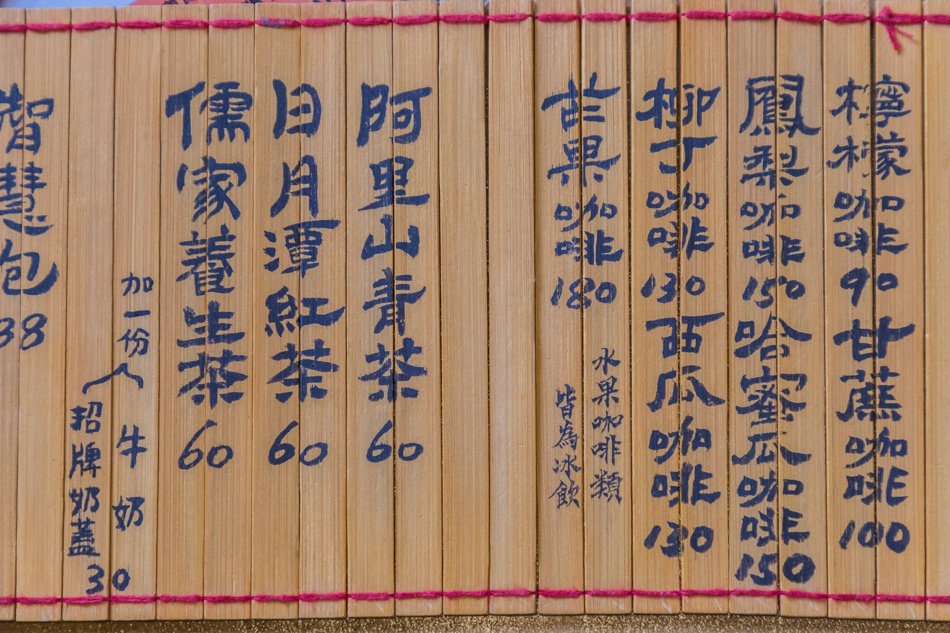 檸檬咖啡90
甘蔗咖啡100
鳳梨咖啡150
哈蜜瓜咖啡150
柳丁咖啡130
西瓜咖啡130
芒果咖啡180
水果咖啡類
皆為冰飲
阿里山青茶60
日月潭紅茶60
儒家養生茶60
加一份
牛奶
招牌奶蓋
30
智慧包
38